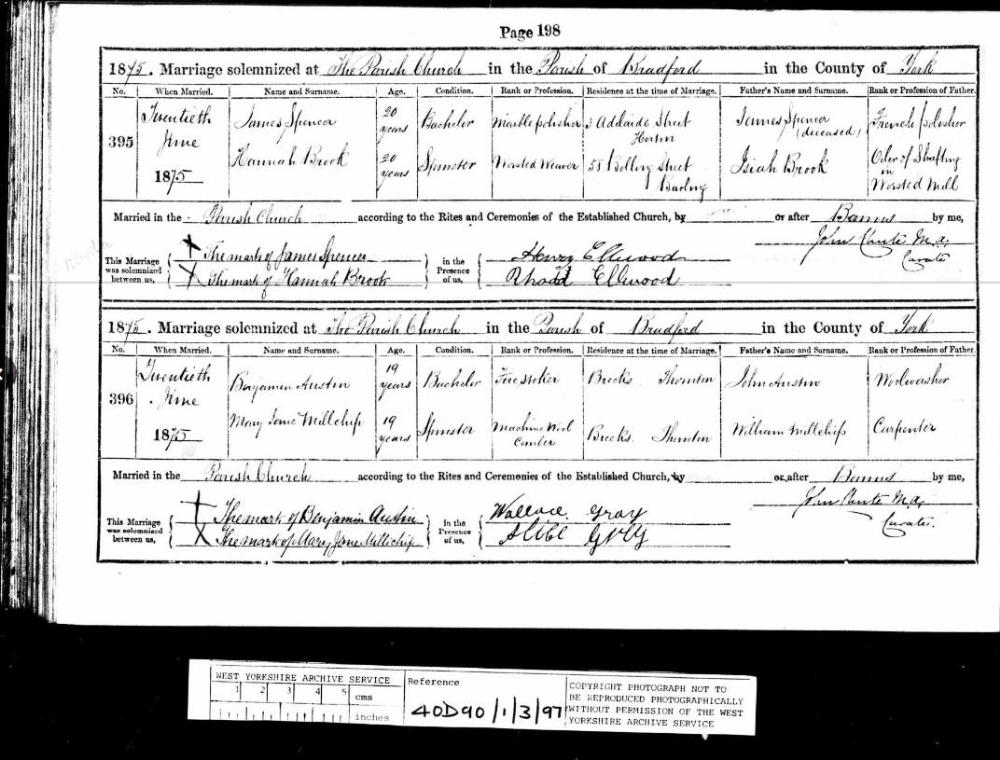 Page 198
1875. Marriage solemnized at The Parish Church in the Parish of Bradford in the County of York
No. When Married. Name and Surname. Age. Condition. Rank or Profession. Residence at the time of Marriage. Father's Name and Surname. Rank or Profession of Father.
395 Twentieth June 1875 James Spencer 20 years Bachelor Marble polisher 3 Adelaide Street Horton James Spencer (deceased) French polisher
Hannah Brook 20 years Spinster Worsted Weaver 58 Bolling Street Isiah Brook Oiler of Shafting in Worsted Mill
Married in the Parish Church according to the Rites and Ceremonies of the Established Church, by or after Banns by me,
John Cante M.A. Curate
This Marriage was solemnized between us, X The mark of James Spencer in the Presence of us, Henry Ellwood
X The mark of Hannah Brook Rhoda Ellwood
1875. Marriage solemnized at The Parish Church in the Parish of Bradford in the County of York
No. When Married. Name and Surname. Age. Condition. Rank or Profession. Residence at the time of Marriage. Father's Name and Surname. Rank or Profession of Father.
396 Twentieth June 1875 Benjamin Austin 19 years Bachelor Fire stoker Brecks Thornton John Austin Woolwasher
Mary Jane Millchip 19 years Spinster Machine Wool Comber Brecks Thornton William Millchip Carpenter
Married in the Parish Church according to the Rites and Ceremonies of the Established Church, by or after Banns by me,
John Cante M.A. Curate.
This Marriage was solemnized between us, X The mark of Benjamin Austin in the Presence of us, Wallace Gray
X The mark of Mary Jane Millichip
WEST YORKSHIRE ARCHIVE SERVICE
1 2 3 4 5 cms
inches
Reference
40D90/1/3/97
COPYRIGHT PHOTOGRAPH NOT TO
BE REPRODUCED PHOTOGRAPHICALLY
WITHOUT PERMISSION OF THE WEST
YORKSHIRE ARCHIVE SERVICE